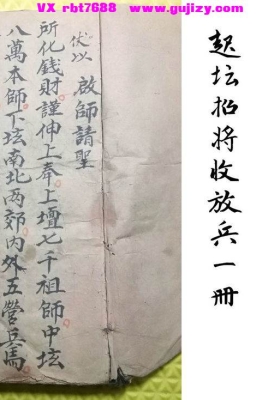 VX rbt7688 www.gujizy.com
起坛招将收放兵一冊
伏以
啟師請聖
所化錢財謹伸上奉上壇七千祖師中坛
八萬本師下坛南北两郊內外五營兵馬